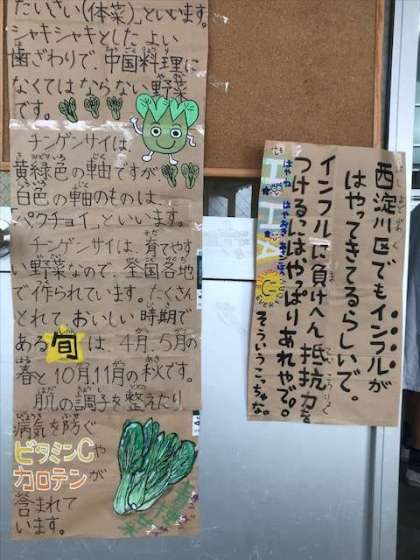 たいさい(体菜)といいます。
シャキシャキとしたよい
歯ざわりで、中国料理に
なくてはならない野菜
です。
チンゲンサイは、
黄緑色の軸ですが、
白色の軸のものは、
パクチョイ、といいます。
チンゲンサイは、育てやす
い野菜なので、全国各地
で作られています。たくさん
とれて、おいしい時期で
ある旬は、4月、5月の
春と10月11月の秋です。
肌の調子を整えたり
病気を防ぐ
ビタミンCや
カロテンが
含まれて
います。
西淀川区でもインフルが
はやってきてるらしいで。
インフルに負けへん抵抗力を
つけるにはやっぱりあれやで。
そういうこっちゃな。